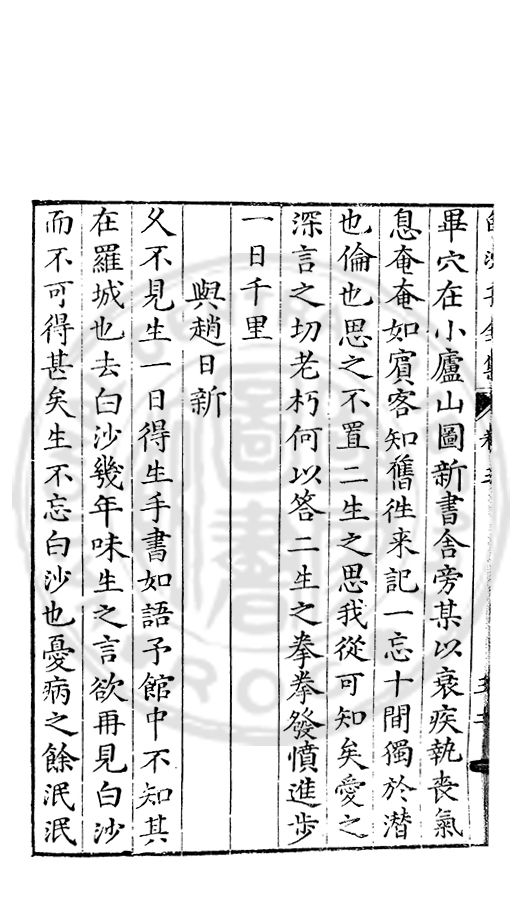 畢穴在小廬山圖新書舍旁某以衰疾執喪氣
息奄奄如賓客知舊徃来記一忘十間獨於潛
也倫也思之不置二生之思我從可知矣愛之
深言之切老朽何以答二生之拳拳發憤進步
一日千里
與趙日新
久不見生一日得生手書如語予館中不知其
在羅城也去白沙幾年味生之言欲再見白沙
而不可得甚矣生不忘白沙也憂病之餘泯泯